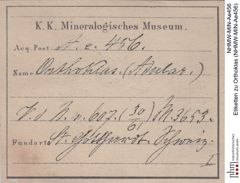 K. K. Mineralogisches Museum.
Acq. Post. A. e. 456.
Name Orthoklas (Adular.)
V. d. N. v. 607. (30/61) M. 3653.
Fundort St. Gotthardt, Schweiz
I
Etiketten zu Orthoklas (NHMW-MIN-Ae456)
NHMW-MIN-Ae456
nhm